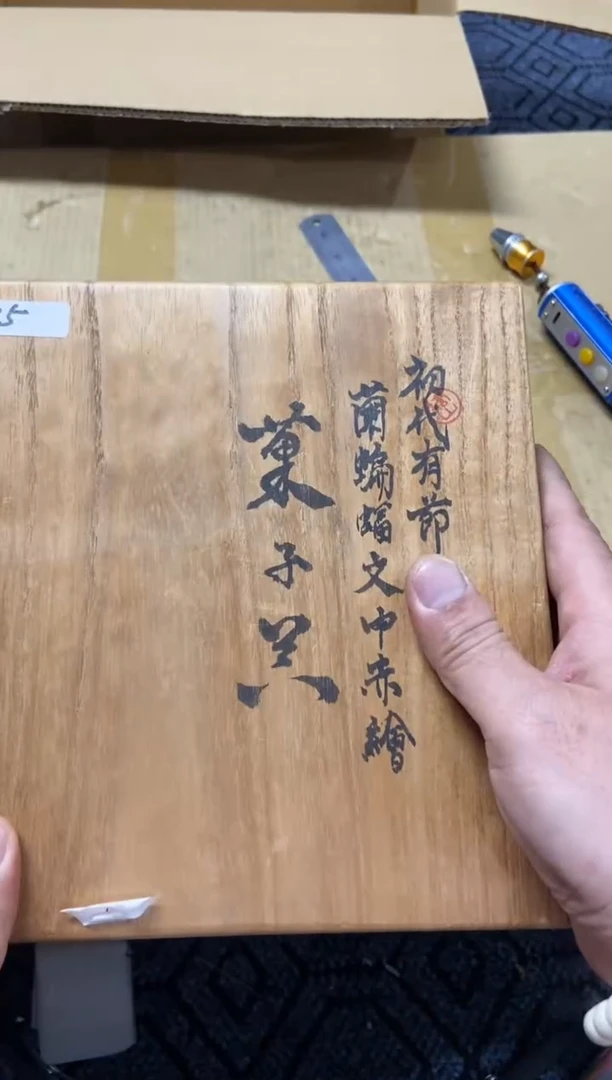 初代有節
蘭蝙蝠文中赤繪
菓子器
5